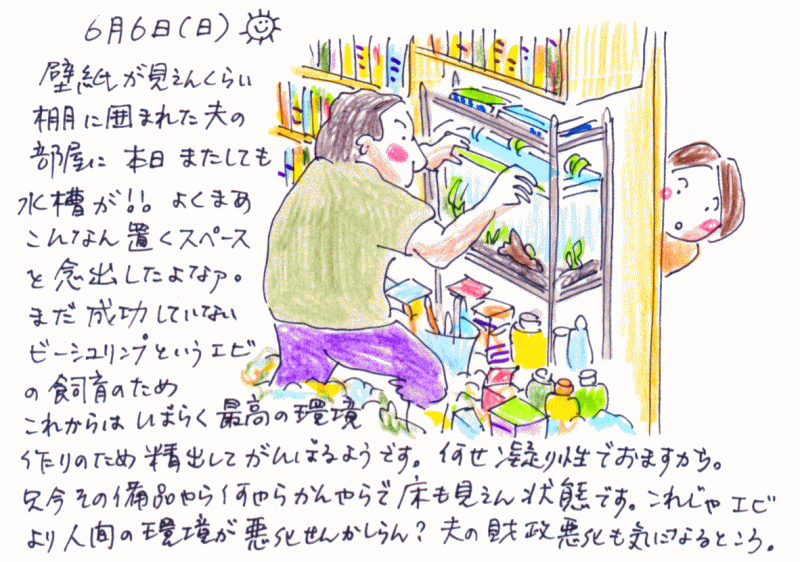 6月6日(日)
壁紙が見えんくらい
棚に囲まれた夫の
部屋に 本日 またしても
水槽が!!。よくまぁ
こんなん置くスペース
を念出したよなァ。
まだ成功していない
ビーシュリンプというエビ
の飼育のため
これからは しばらく最高の環境
作りのため精出してがんばるようです。何せ凝り性でおますから。
只今その備品やら何やらかんやらで床も見えん状態です。これじゃエビ
より人間の環境が悪化せんかしらん?夫の財政悪化も気になるところ。